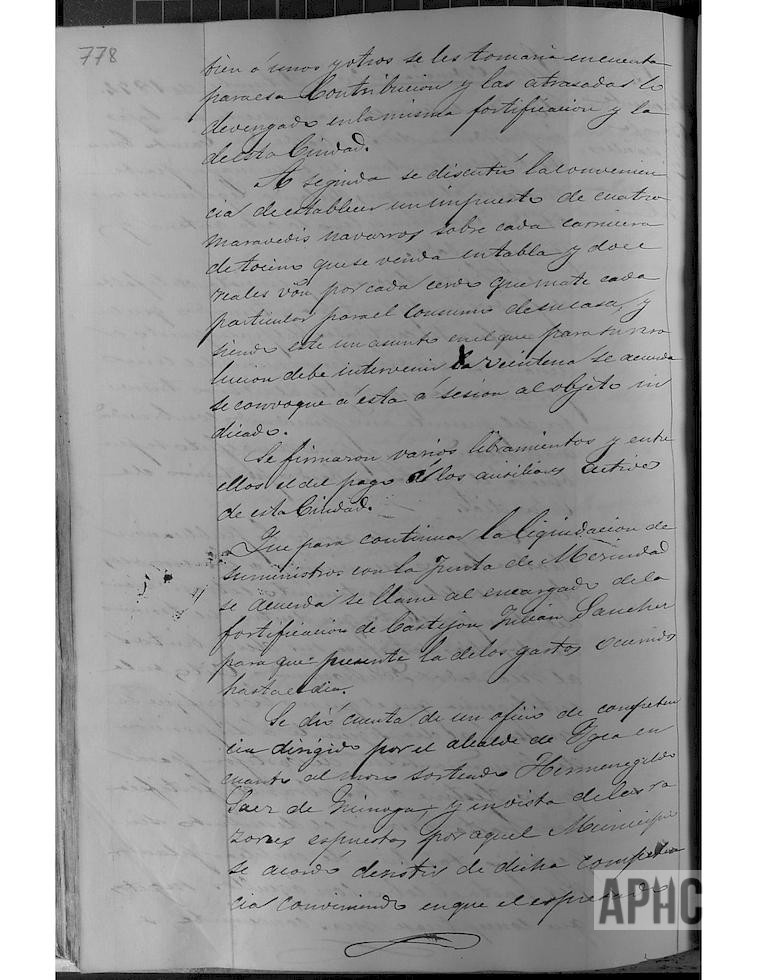 778
bien á unos y otros se les tomaria en cuenta
para esa Contribucion y las atrasadas lo
devengado en la misma fortificacion y la
de esta Ciudad.
A seguida se discutió la convenien
cia de establecer un impuesto de cuatro
maravedis navarros sobre cada carnicera
de tocino que se venda en tabla y doce
reales von por cada cerdo que mate cada
particular para el consumo de su casa, y
siendo este un asunto en el que para su reso
lucion debe intervenir la veintena se acuerda
se convoque á ésta á sesion al objeto in
dicado.
Se firmaron varios libramientos y entre
ellos el del pago á los ausiliares activos
de esta Ciudad.
Que para continuar la liquidacion de
suministros con la Junta de Merindad
se acuerda se llame al encargado de la
fortificacion de Castejon Julián Sanchez
para que presente la de los gastos ocurridos
hasta el dia.
Se dió cuenta de un oficio de competen
cia dirigido por el alcalde de Egea en
cuanto al mozo sorteado Hermenegildo
Saez de y en vista de las ra
zones espuestas por aquel Municipio
se acordó desistir de dicha competen
cia conviniendo en que el espresado
APHC